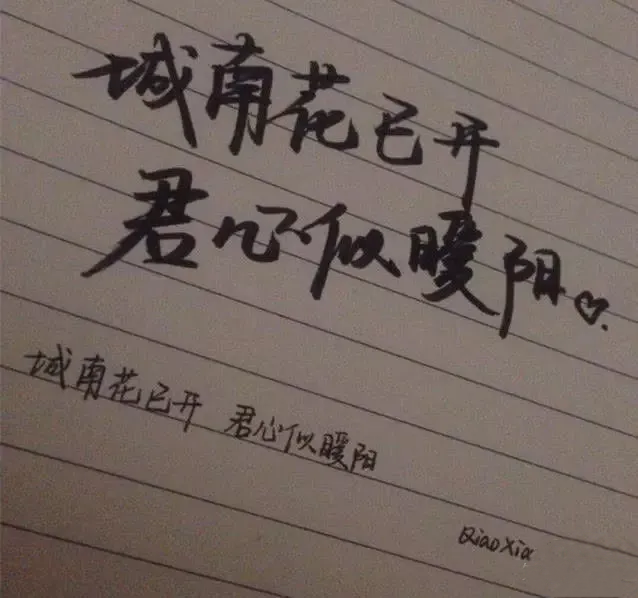 城南花已开
君心似暖阳♡.
城南花已开 君心似暖阳
QiaoXia